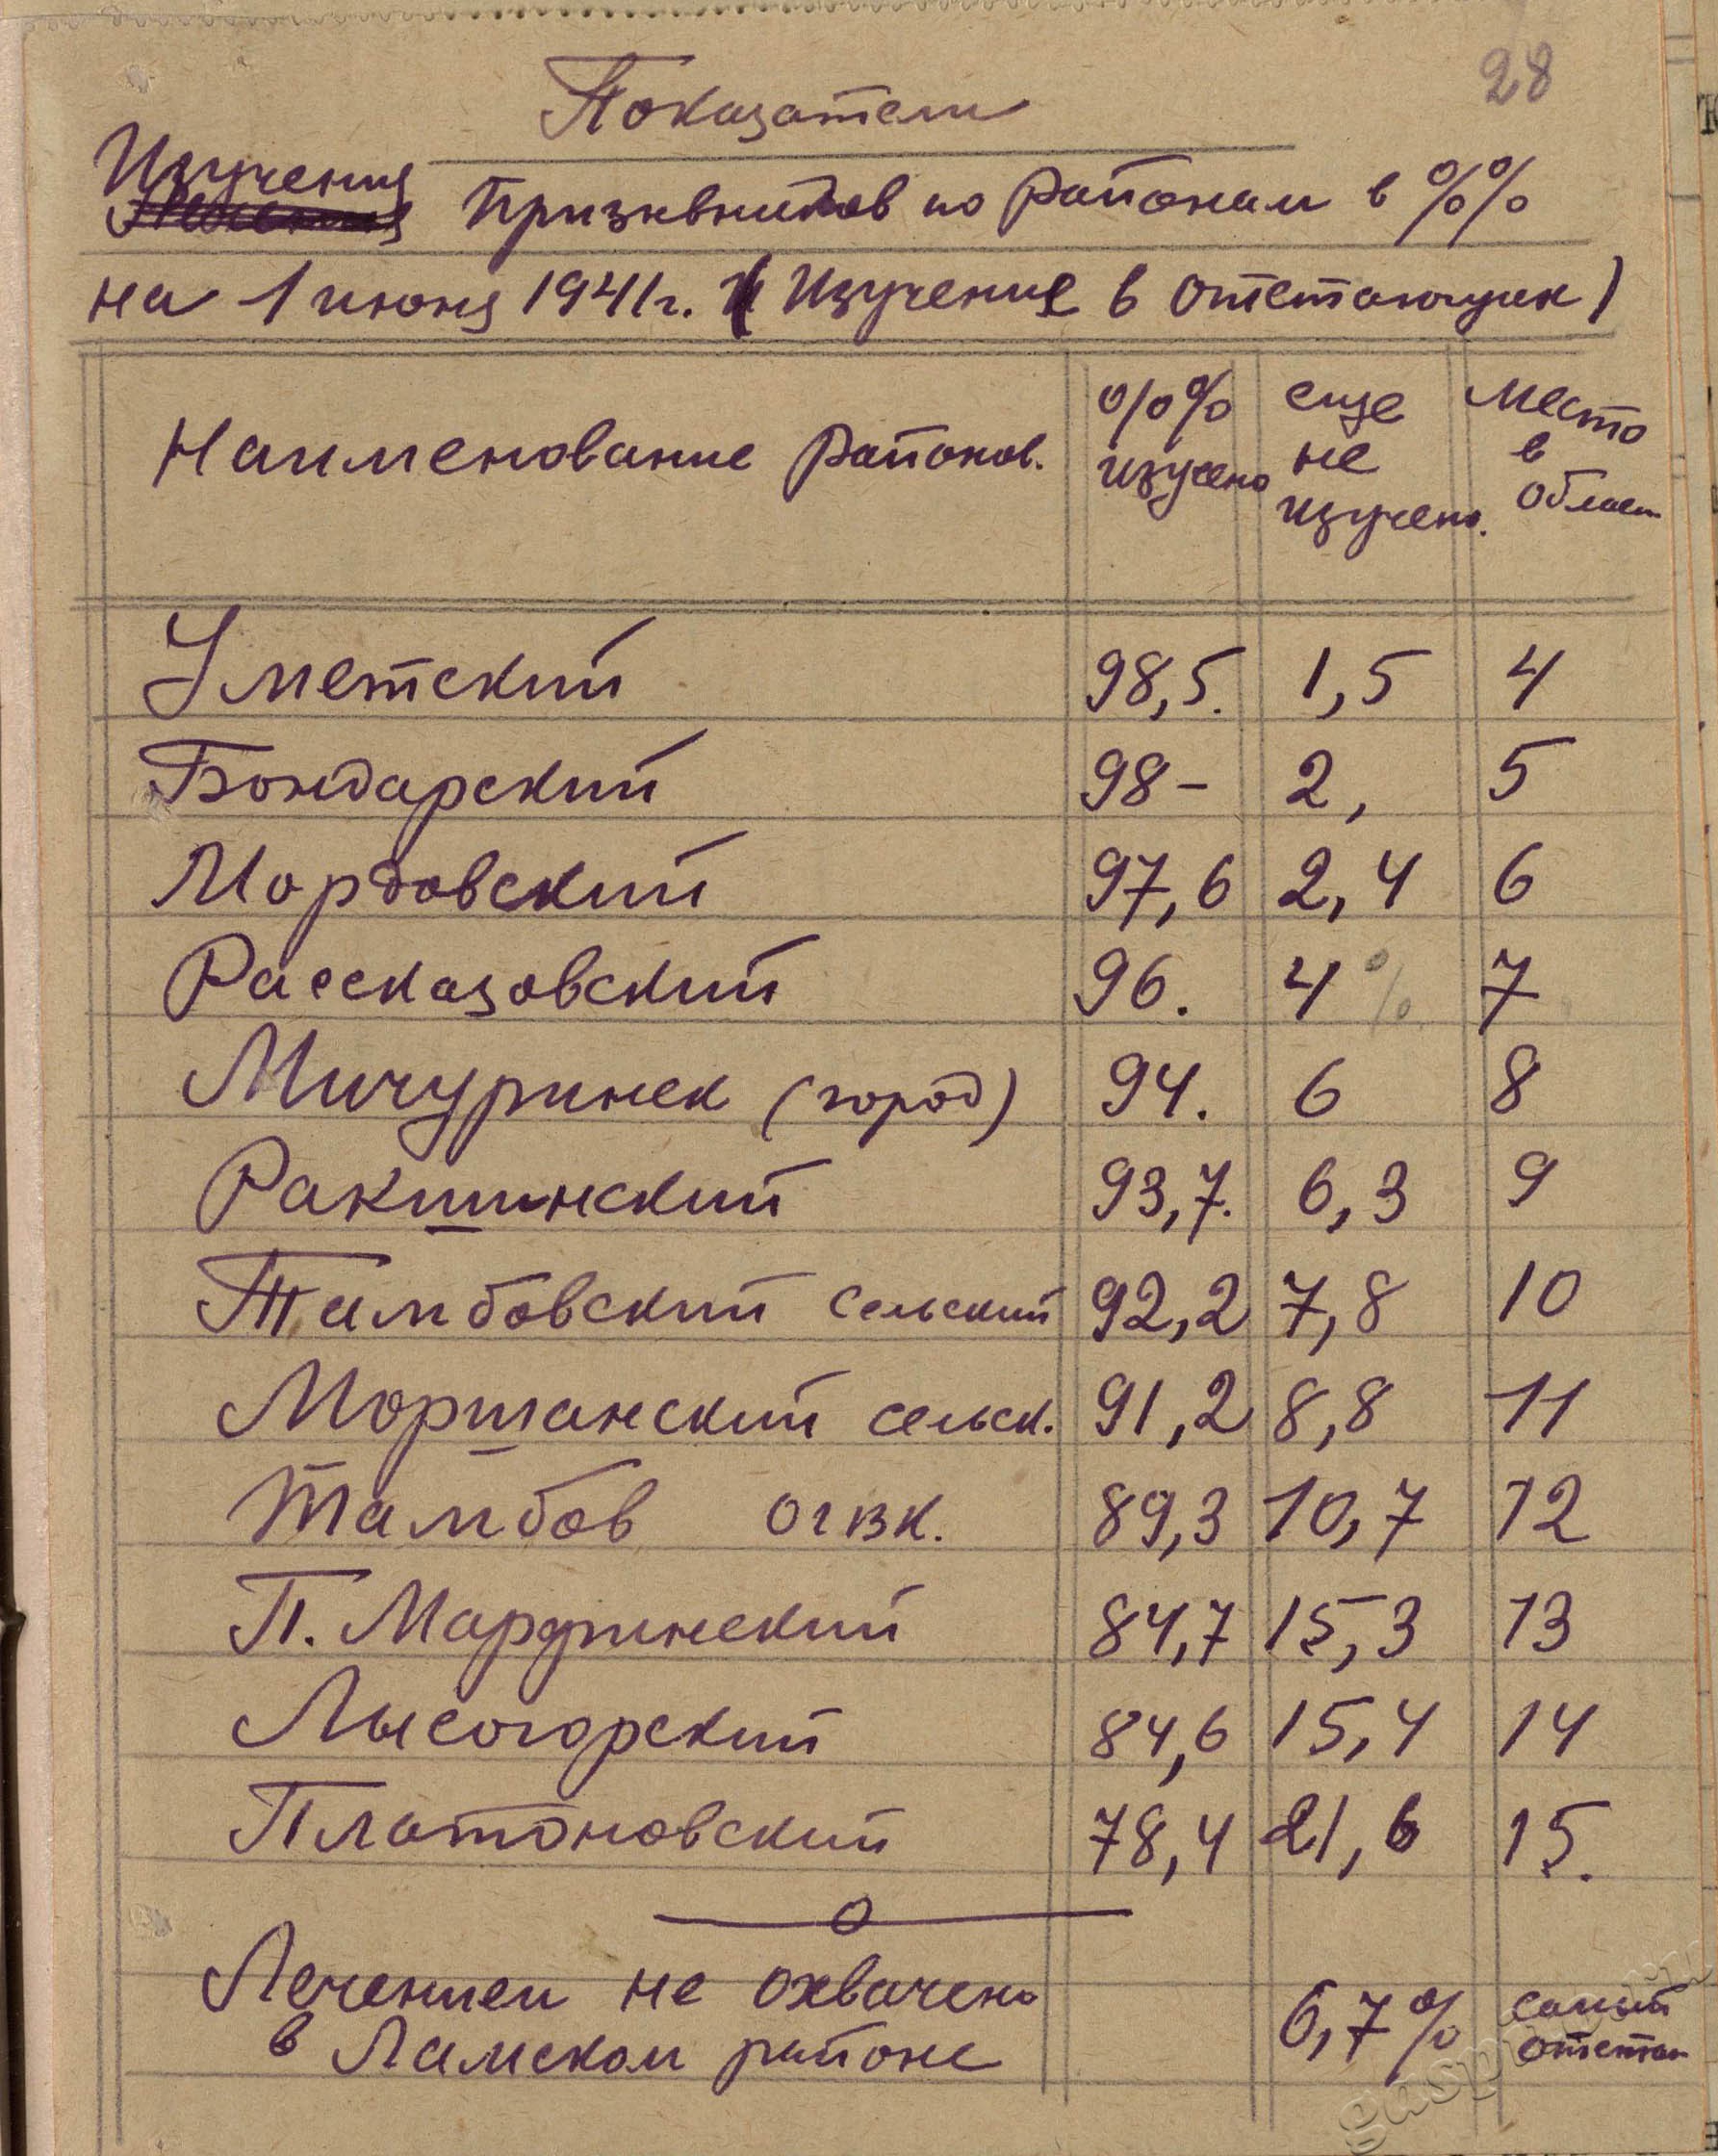 28
Показатели
Изучения
призывников по районам в %%
на 1 июня 1941г. (Изучение в отстающих)
Наименование районов. %% изучено еще не изучено. место в област
Уметский 98,5. 1,5 4
Бондарский 98- 2, 5
Мордовский 97,6 2,4 6
Рассказовский 96. 4% 7
Мичуринск (город) 94. 6 8
Ракшинский 93,7. 6,3 9
Тамбовский сельский 92,2 7,8 10
Моршанский сельск. 91,2 8,8 11
Тамбов ОГВК. 89,3 10,7 12
П. Марфинский 84,7 15,3 13
Лысогорский 84,6 15,4 14
Платоновский 78,4 21,6 15.
Лечением не охвачено
в Ламском районе 6,7% самый отстал